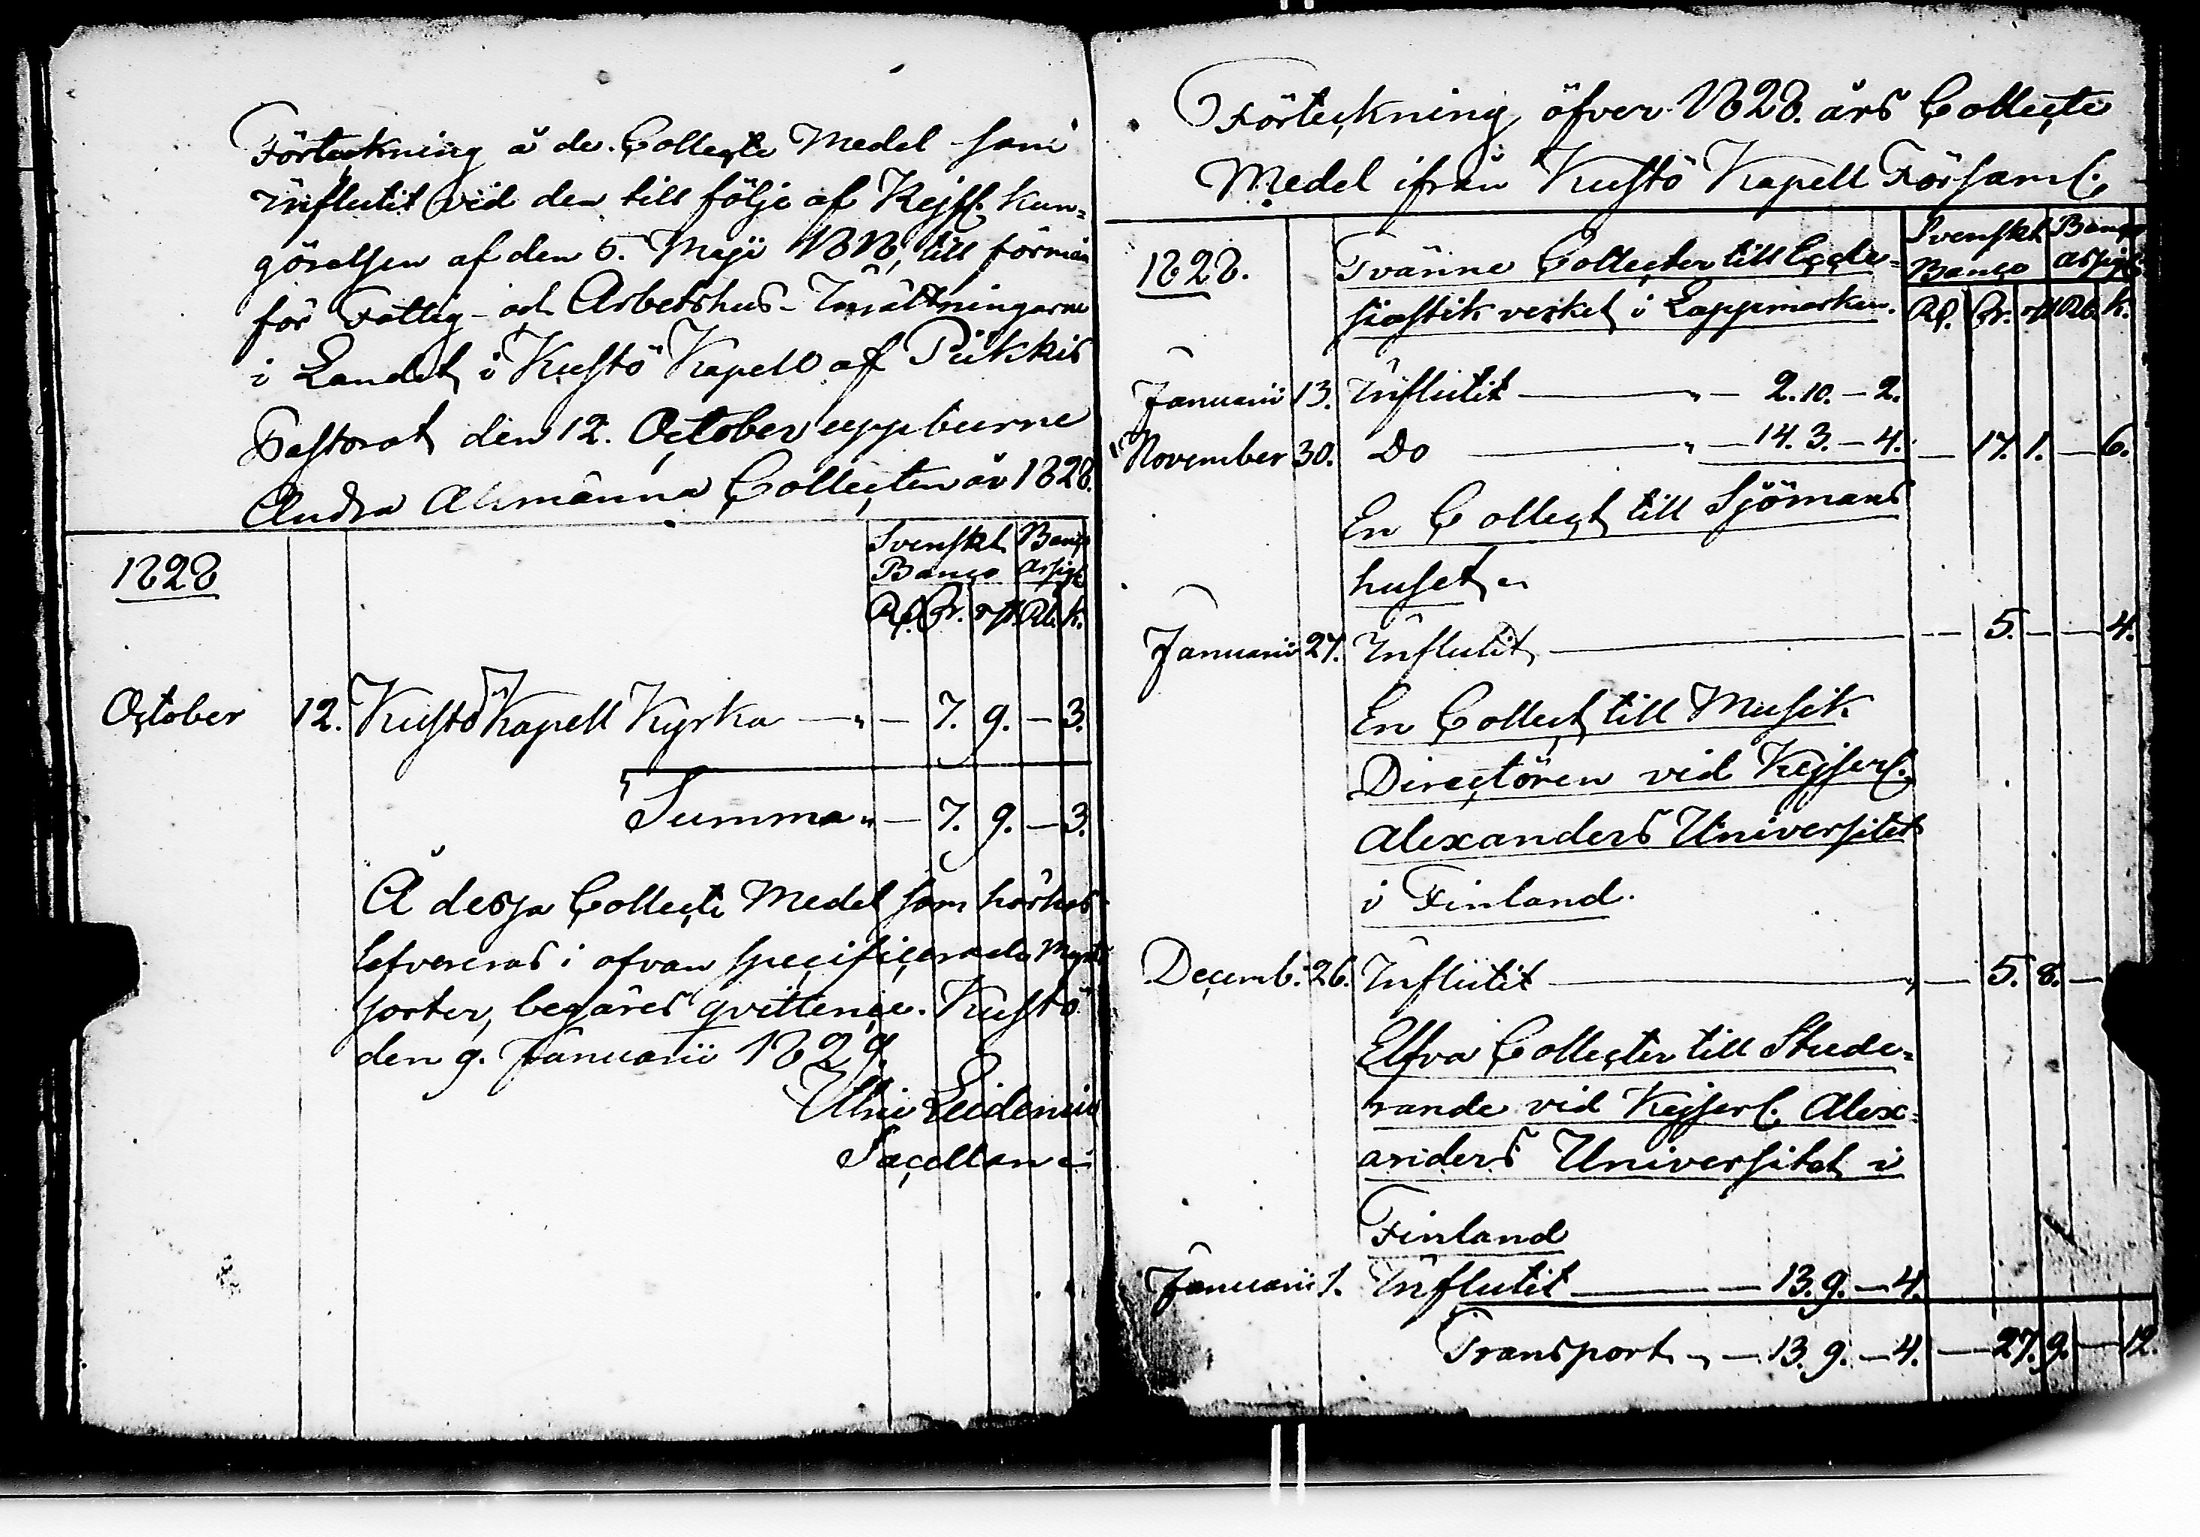 Förteckning å de Collecte Medel som
influtit vid den till följe af Kejsl. Kun-
görelsen af den 5. Maji 1818, till förmån
för Fattig- och Arbetshus-Inrättningarne
i Landet, i Kustö Kapell af Piikkis
Pastorat den 12. October uppburne
Andra Allmänna Collecten år 1828.
1828
Svenskt Banco
Banco Assign.
Rd. Gr. rst. Rb. k.
October 12. Kustö Kapell Kyrka — „ — 7. 9. — 3.
Summa „ — 7. 9. — 3.
Å dessa Collecte Medel som härhos
lefvereras i ofvan specificerade Mynt
sorter, begäres qvittence. Kustö
den 9. Januarii 1829.
Ulric Leidenius
Sacellan
Förteckning öfver 1828. års Collecte
Medel ifrån Kustö Kapell Församl.
1828.
Tvänne Collecter till Eccle-
siastik verket i Lappmarken.
Svenskt Banco
Banco Assign.
Rd. Gr. rst. Rb. k.
Januarii 13. Influtit — „ — 2. 10. — 2.
November 30. Do — „ — 14. 3. — 4. — 17. 1. — 6.
En Collect till Sjömans
huset.
Januarii 27. Influtit — — 5. — — 4.
En Collect till Musik
Directören vid Kejserl.
Alexanders Universitet
i Finland.
Decemb. 26. Influtit — „ — 5. 8. —
Elfva Collecter till Stude-
rande vid Kejserl. Alex-
anders Universitet i
Finland
Januarii 1. Influtit — 13. 9. — 4.
Transport „ — 13. 9. — 4. — 27. 9. — 12.